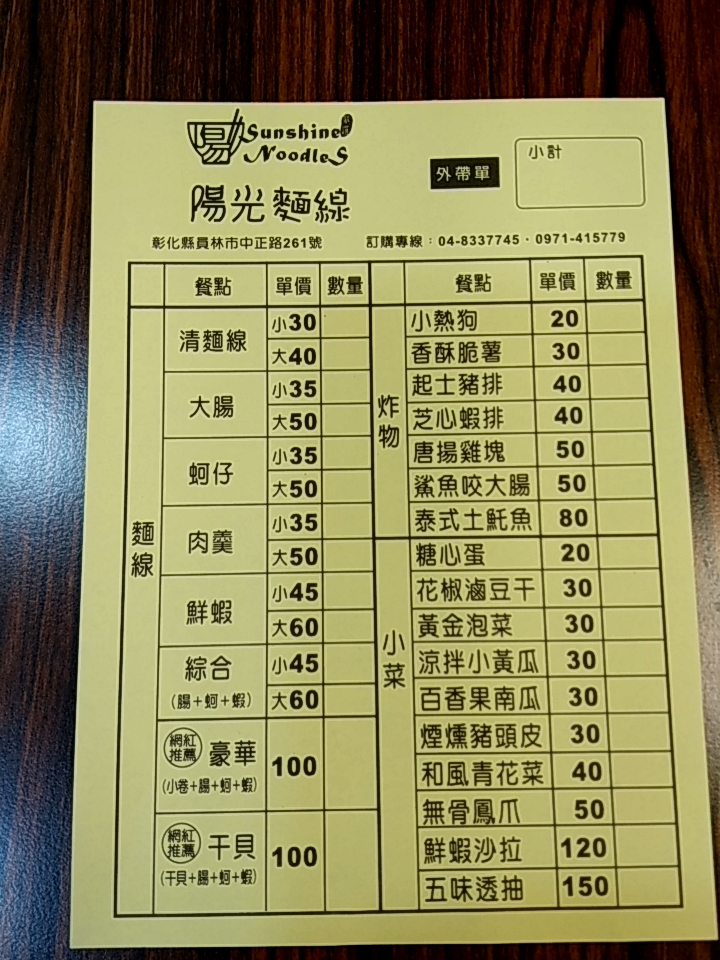 陽 Sunshine
NoodleS
陽光麵線
外帶單
小計
彰化縣員林市中正路261號 訂購專線：04-8337745・0971-415779
餐點 單價 數量
麵線
清麵線 小30
大40
大腸 小35
大50
蚵仔 小35
大50
肉羹 小35
大50
鮮蝦 小45
大60
綜合 小45
(腸+蚵+蝦) 大60
網紅推薦 豪華 100
(小卷+腸+蚵+蝦)
網紅推薦 干貝 100
(干貝+腸+蚵+蝦)
餐點 單價 數量
炸物
小熱狗 20
香酥脆薯 30
起士豬排 40
芝心蝦排 40
唐揚雞塊 50
鯊魚咬大腸 50
泰式土魠魚 80
小菜
糖心蛋 20
花椒滷豆干 30
黃金泡菜 30
涼拌小黃瓜 30
百香果南瓜 30
煙燻豬頭皮 30
和風青花菜 40
無骨鳳爪 50
鮮蝦沙拉 120
五味透抽 150